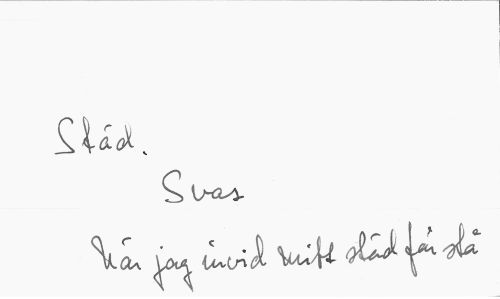 Städ.
Svar
När jag invid mitt städ får stå